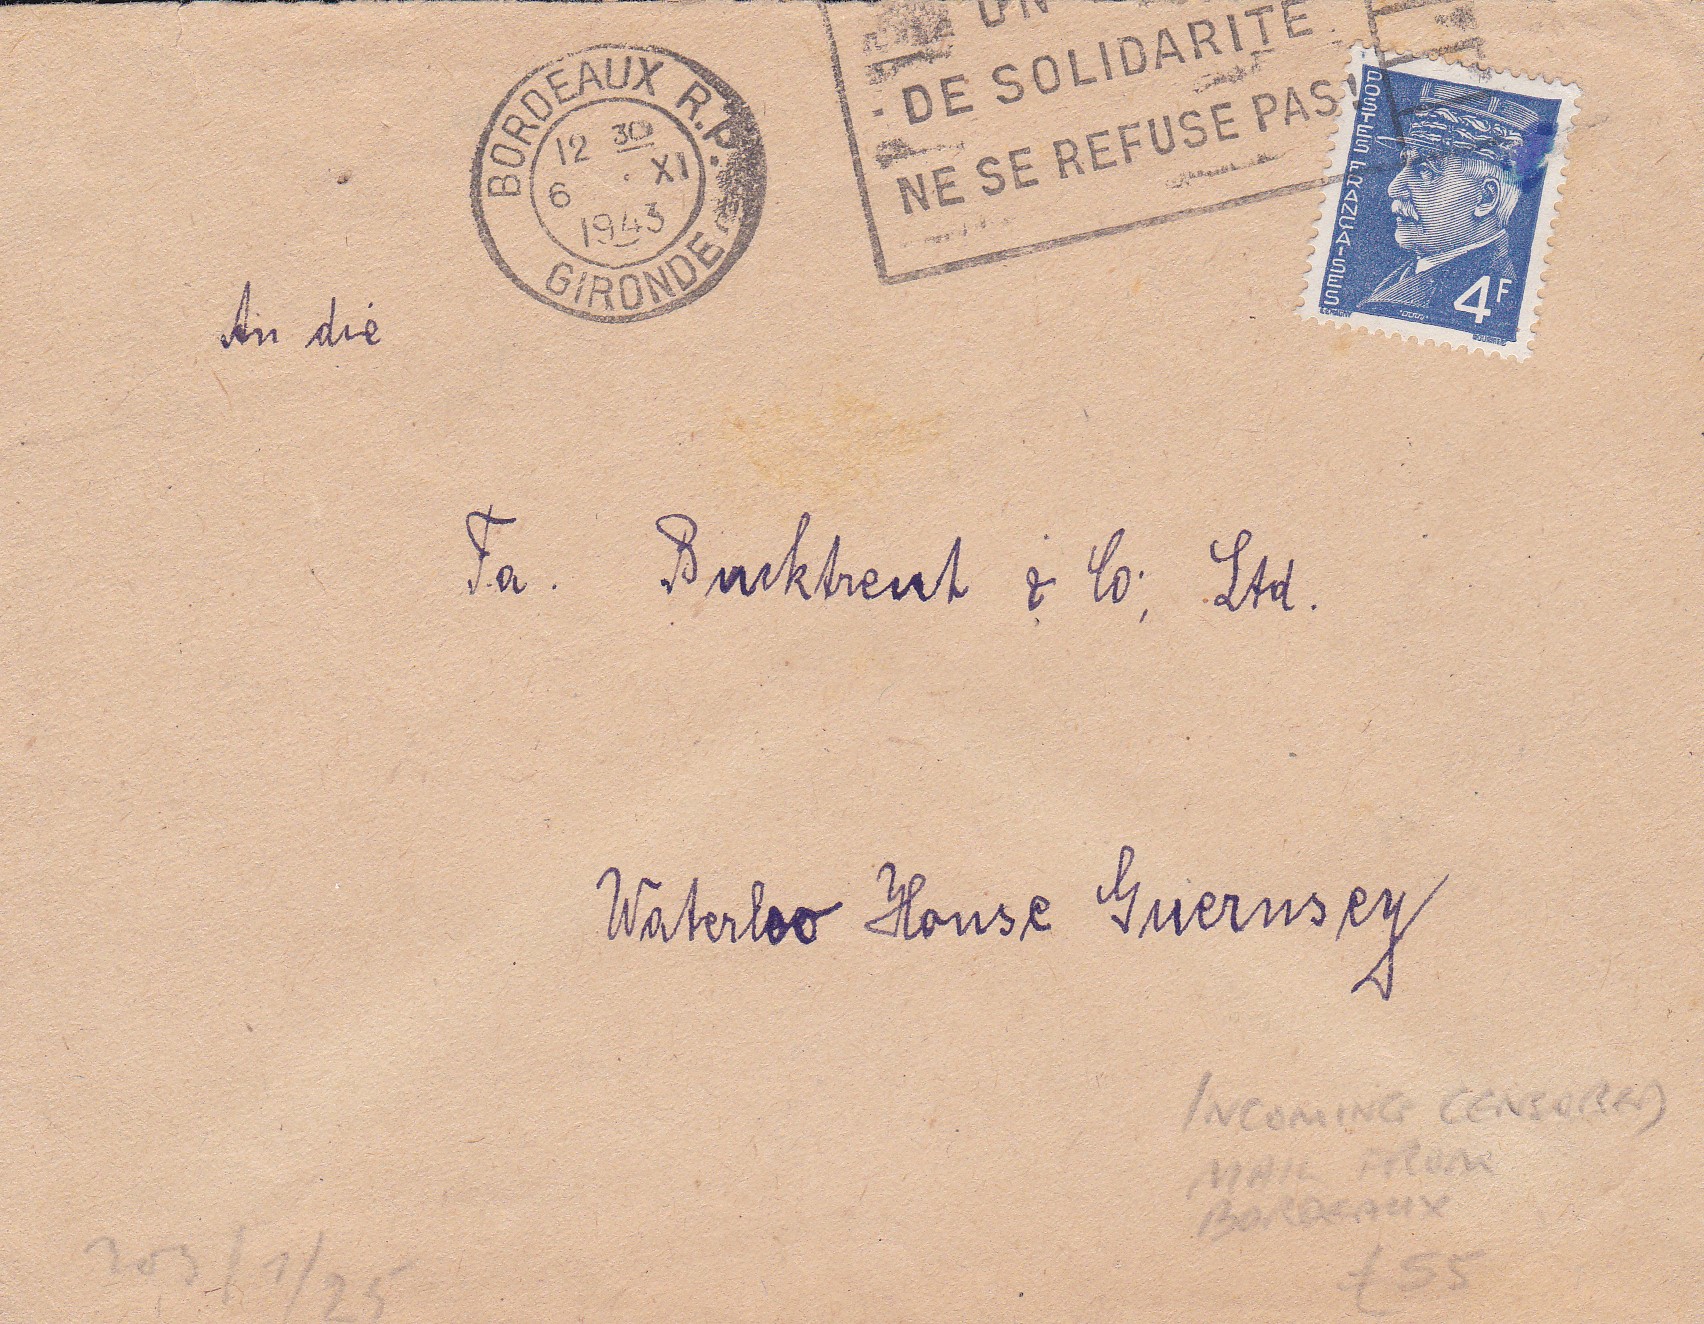 BORDEAUX R.P.
12 30
6 XI
1943
GIRONDE
UN
DE SOLIDARITE
NE SE REFUSE PAS!
POSTES FRANCAISES
4F
An die
Fa. Bucktreut & Co; Ltd.
Waterloo House Guernsey
INCOMING CENSORED
MAIL FROM
BORDEAUX
£55
203/1/25